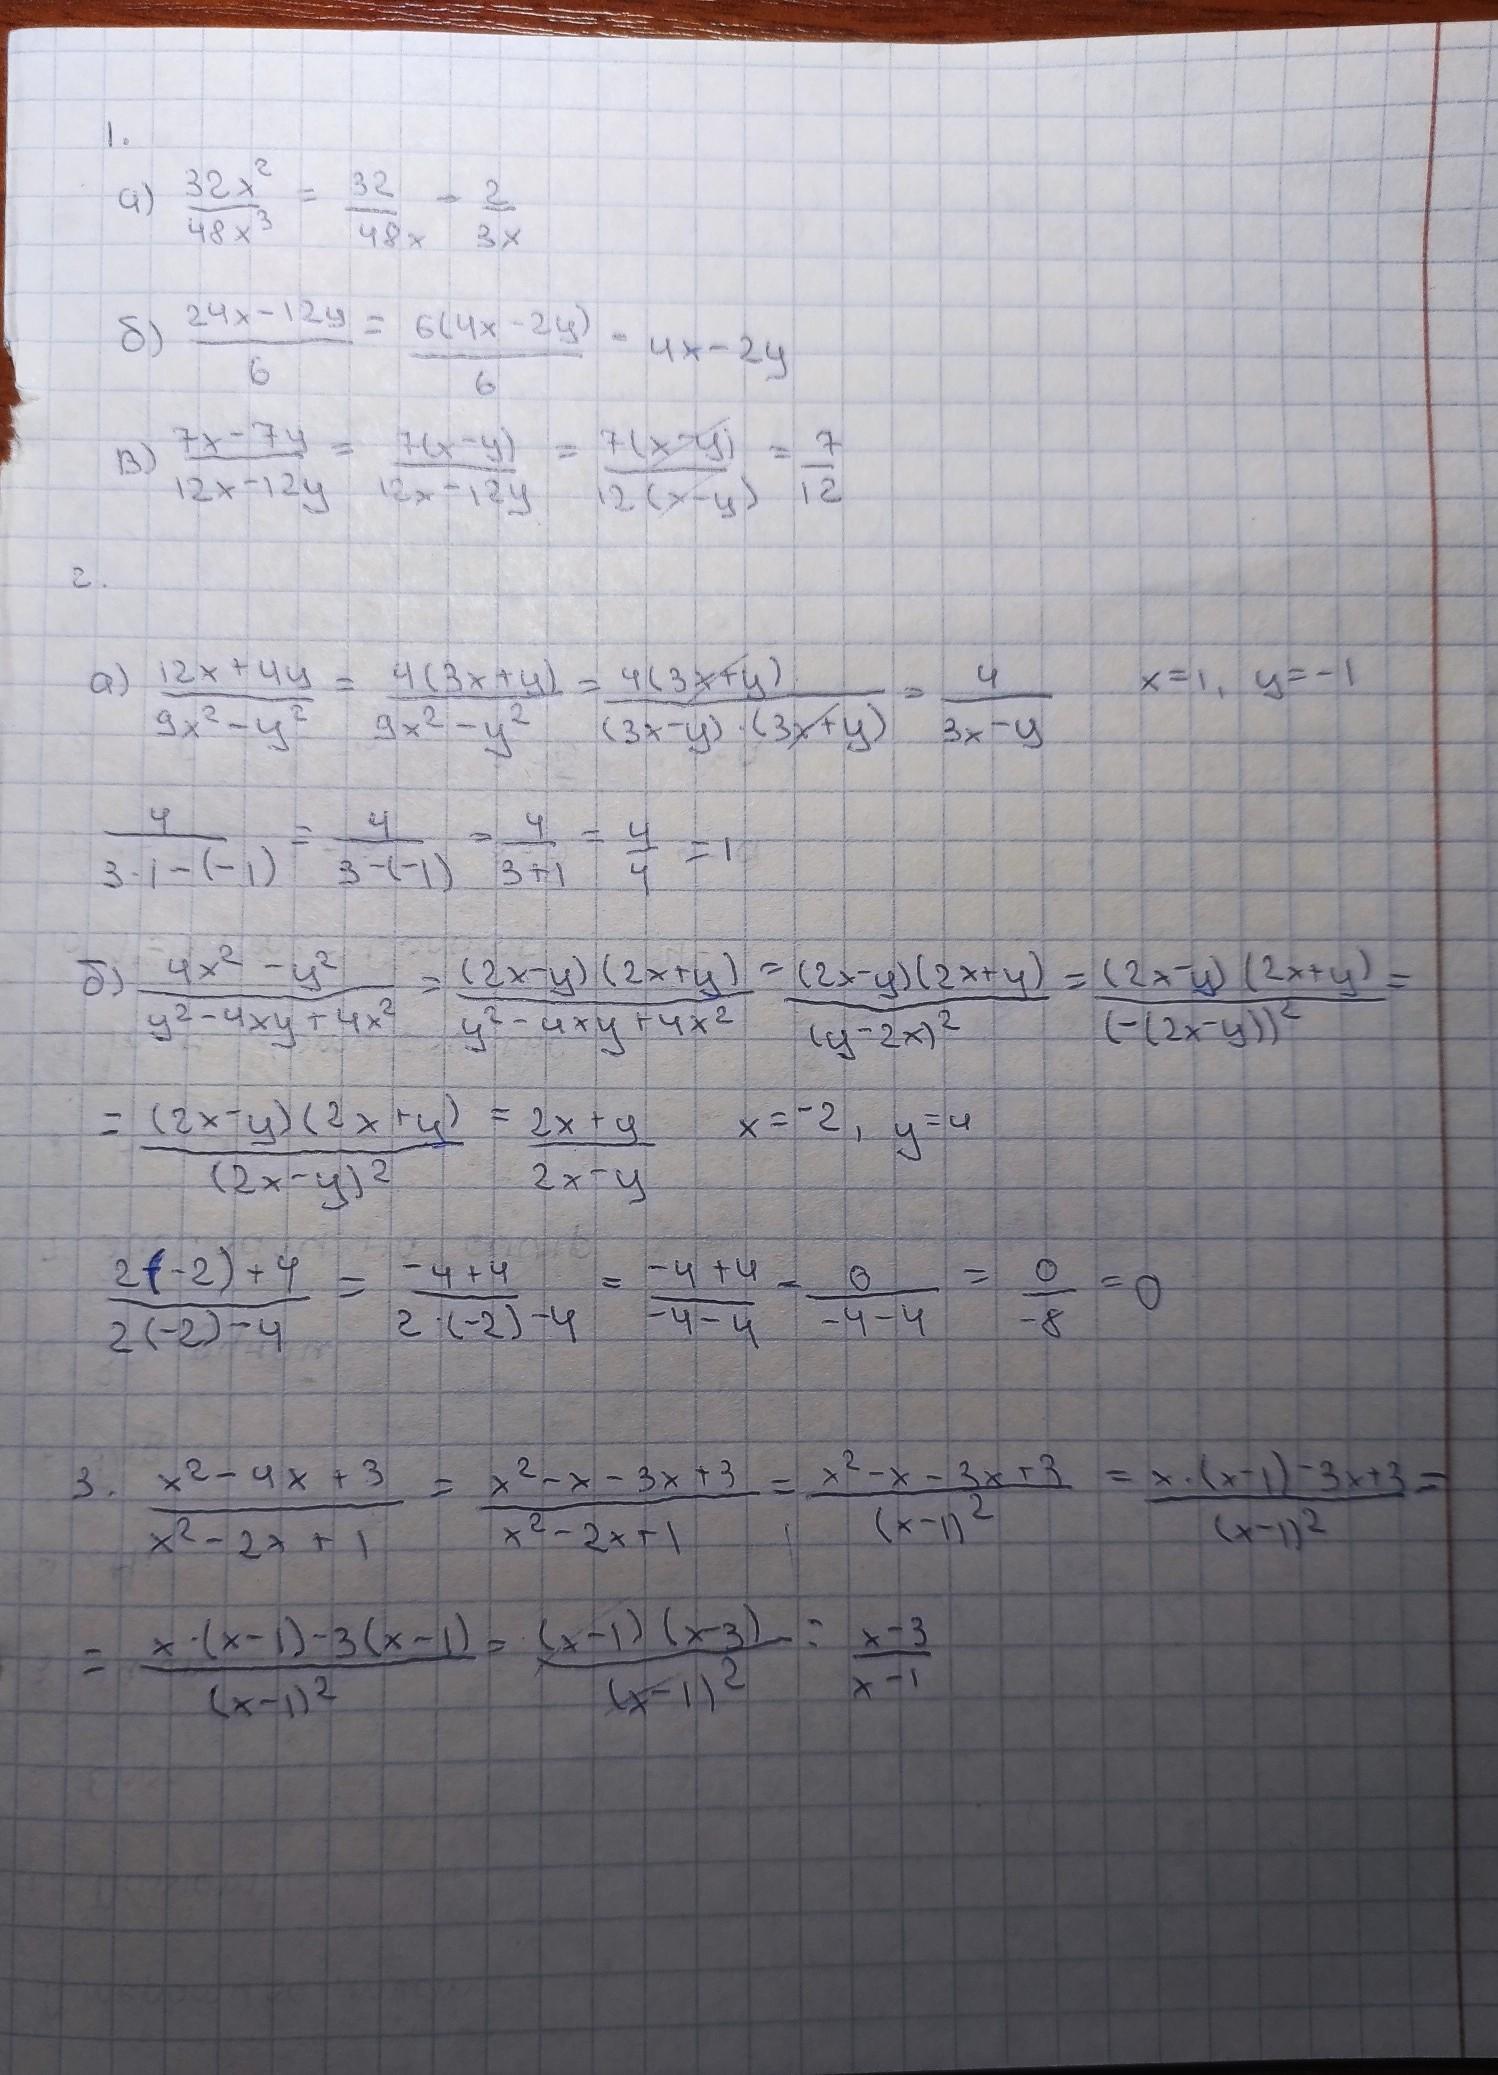 1.
а) 32x²/48x³ = 32/48x - 2/3x
б) 24x-12y/6 = 6(4x-2y)/6 - 4x-2y
в) 7x-7y/12x-12y = 7(x-y)/12x-12y = 7(x-y)/12(x-y) = 7/12
2.
а) 12x+4y/9x²-y² = 4(3x+y)/9x²-y² = 4(3x+y)/(3x-y)·(3x+y) = 4/3x-y x=1, y=-1
4/3·1-(-1) = 4/3-(-1) = 4/3+1 = 4/4 = 1
б) 4x²-y²/y²-4xy+4x² = (2x-y)(2x+y)/y²-4xy+4x² = (2x-y)(2x+y)/(y-2x)² = (2x-y)(2x+y)/(-(2x-y))² =
= (2x-y)(2x+y)/(2x-y)² = 2x+y/2x-y x=-2, y=4
2(-2)+4/2(-2)-4 = -4+4/2·(-2)-4 = -4+4/-4-4 - 0/-4-4 = 0/-8 = 0
3. x²-4x+3/x²-2x+1 = x²-x-3x+3/x²-2x+1 = x²-x-3x+3/(x-1)² = x·(x-1)-3x+3/(x-1)² =
= x·(x-1)-3(x-1)/(x-1)² = (x-1)(x-3)/(x-1)² = x-3/x-1